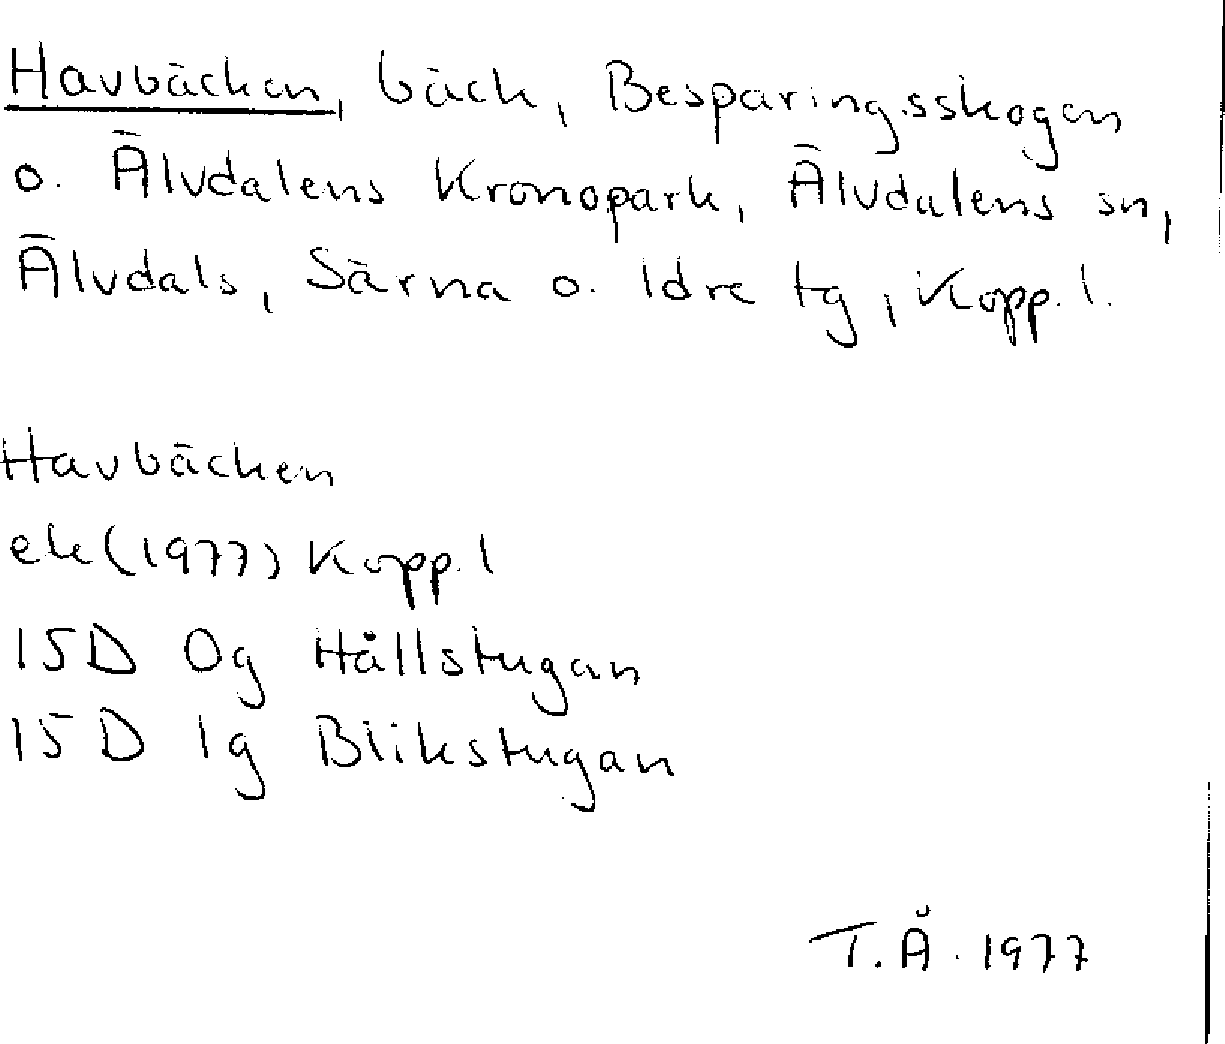 Havbäcken, bäck, Besparingsskogen
o. Älvdalens Kronopark, Älvdalens sn,
Älvdals, Särna o. Idre tg, Kopp. l.
Havbäcken
ek (1977) Kopp. l
15D 0g Hållstugan
15D 1g Blikstugan
T. Å. 1977